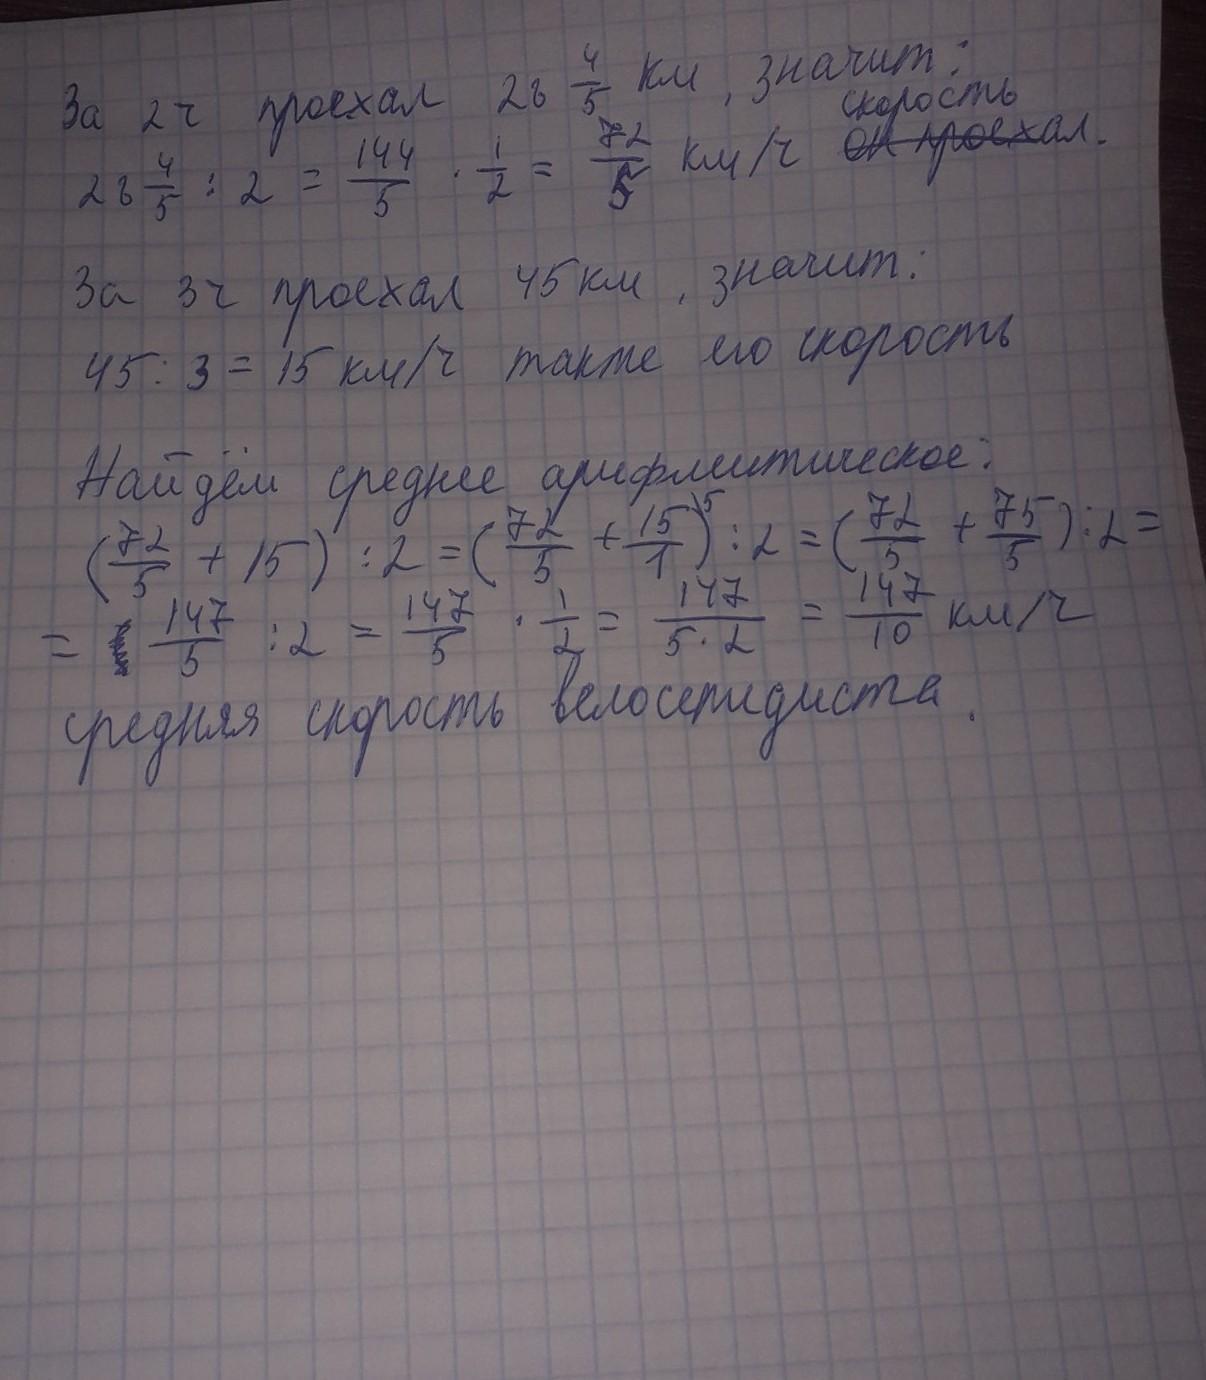 За 2ч проехал 28 4/5 км, значит:
28 4/5 : 2 = 144/5 · 1/2 = 72/5 км/ч скорость он проехал.
За 3ч проехал 45км, значит:
45 : 3 = 15 км/ч также его скорость
Найдём среднее арифметическое:
(72/5 + 15) : 2 = (72/5 + 15/1)⁵ : 2 = (72/5 + 75/5) : 2 =
= 147/5 : 2 = 147/5 · 1/2 = 147/5·2 = 147/10 км/ч
средняя скорость велосепидиста.